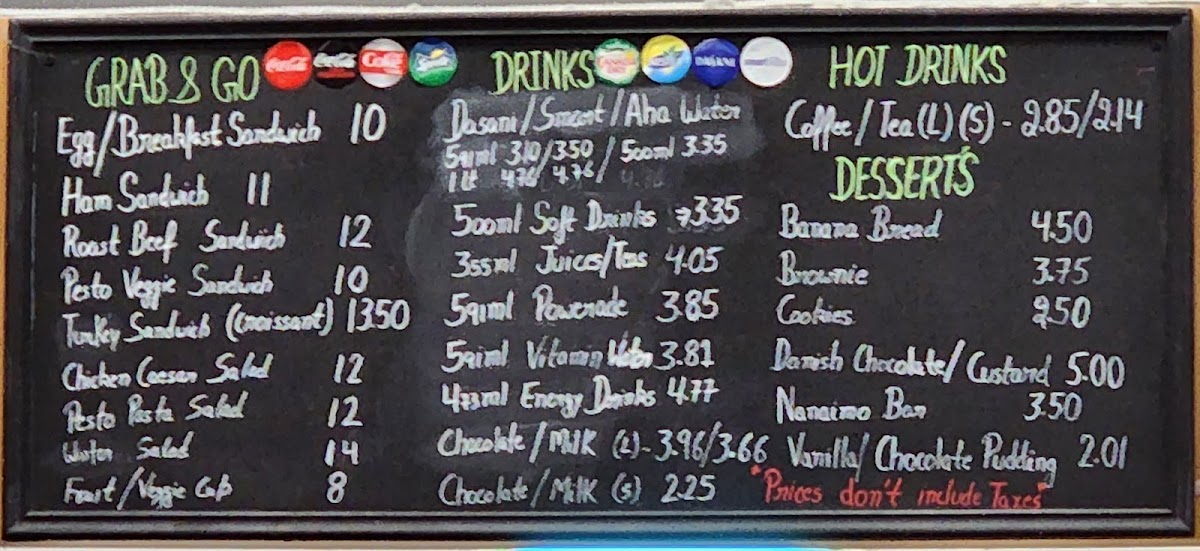 GRAB & GO
Egg/Breakfast Sandwich 10
Ham Sandwich 11
Roast Beef Sandwich 12
Pesto Veggie Sandwich 10
Turkey Sandwich (Croissant) 13.50
Chicken Caesar Salad 12
Pesto Pasta Salad 12
Winter Salad 14
Fruit/Veggie Cup 8
Coca-Cola
Coca-Cola
Coke
Sprite
DRINKS
CANADA DRY
DASANI
smartwater
Dasani/Smart/Aha Water
591ml 3.10/3.50 / 500ml 3.35
1 Lt 4.76/ 4.76/
500ml Soft Drinks 3.35
355ml Juices/Teas 4.05
591ml Powerade 3.85
591ml Vitamin Water 3.81
473ml Energy Drinks 4.77
Chocolate/Milk (L)-3.96/3.66
Chocolate/Milk (s) 2.25
HOT DRINKS
Coffee/Tea(L)(S) - 2.85/2.14
DESSERT'S
Banana Bread 4.50
Brownie 3.75
Cookies 2.50
Danish Chocolate/Custard 5.00
Nanaimo Bar 3.50
Vanilla/Chocolate Pudding 2.01
*Prices don't include Taxes*